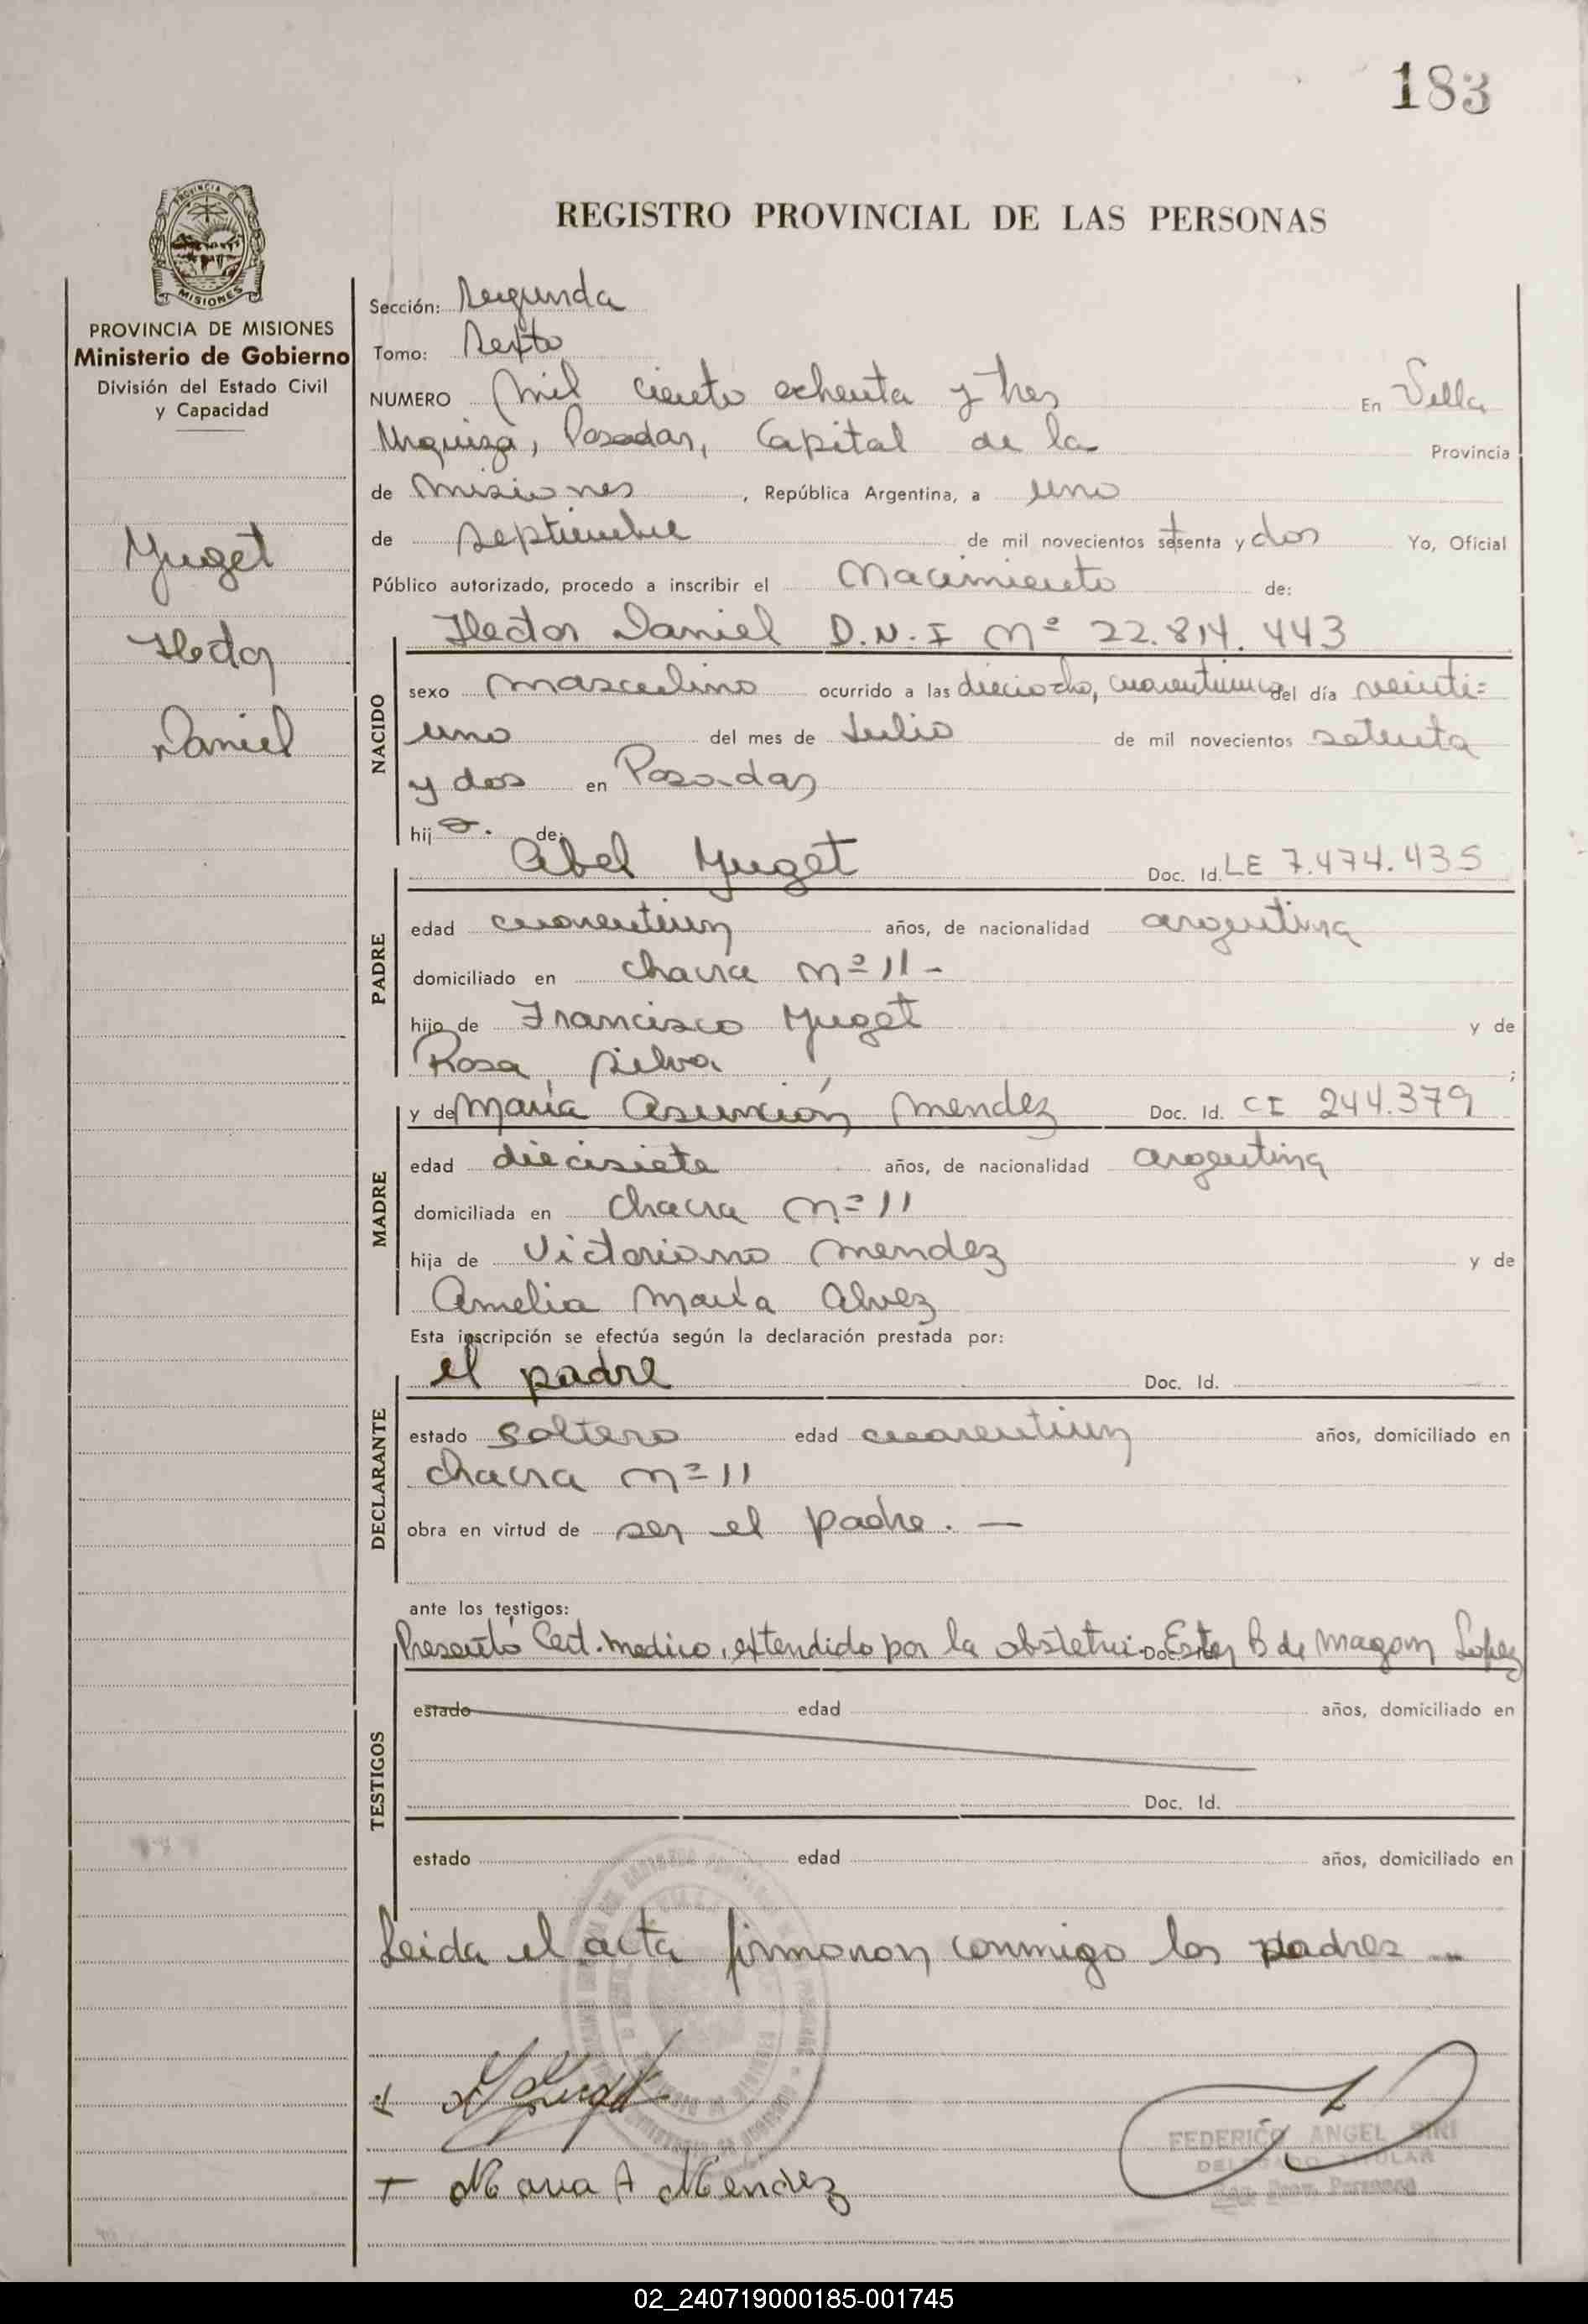 183
PROVINCIA DE
MISIONES
REGISTRO PROVINCIAL DE LAS PERSONAS
PROVINCIA DE MISIONES
Ministerio de Gobierno
División del Estado Civil
y Capacidad
Yuget
Hector
Daniel
Sección: Segunda
Tomo: Sexto
NUMERO Mil ciento ochenta y tres En Villa
Urquiza, Posadas, Capital de la Provincia
de Misiones, República Argentina, a uno
de septiembre de mil novecientos setenta y dos Yo, Oficial
Público autorizado, procedo a inscribir el Nacimiento de:
NACIDO
Hector Daniel D.N.I Nº 22.814.443
sexo masculino ocurrido a las dieciocho, cuarenticinco del día veinti=
uno del mes de Julio de mil novecientos setenta
y dos en Posadas
hijo. de:
PADRE
Abel Yuget Doc. Id. LE 7.474.435
edad cuarentiun años, de nacionalidad argentina
domiciliado en chacra Nº 11 -
hijo de Francisco Yuget y de
Rosa Silva ;
MADRE
y de María Asunción Mendez Doc. Id. CI 244.379
edad diecisiete años, de nacionalidad argentina
domiciliada en chacra Nº 11
hija de Victoriano Mendez y de
Amelia María Alvez
Esta inscripción se efectúa según la declaración prestada por:
DECLARANTE
el padre Doc. Id.
estado soltero edad cuarentiun años, domiciliado en
chacra Nº 11
obra en virtud de ser el padre. —
ante los testigos:
TESTIGOS
Presentó Cert. medico, extendido por la obstetri Doc. Ester B de Lopez
estado edad años, domiciliado en
Doc. Id.
estado edad años, domiciliado en
Leida el acta firmaron conmigo los padres
Maria A Mendez
FEDERICO ANGEL SIRI
DELEGADO TITULAR
02_240719000185-001745